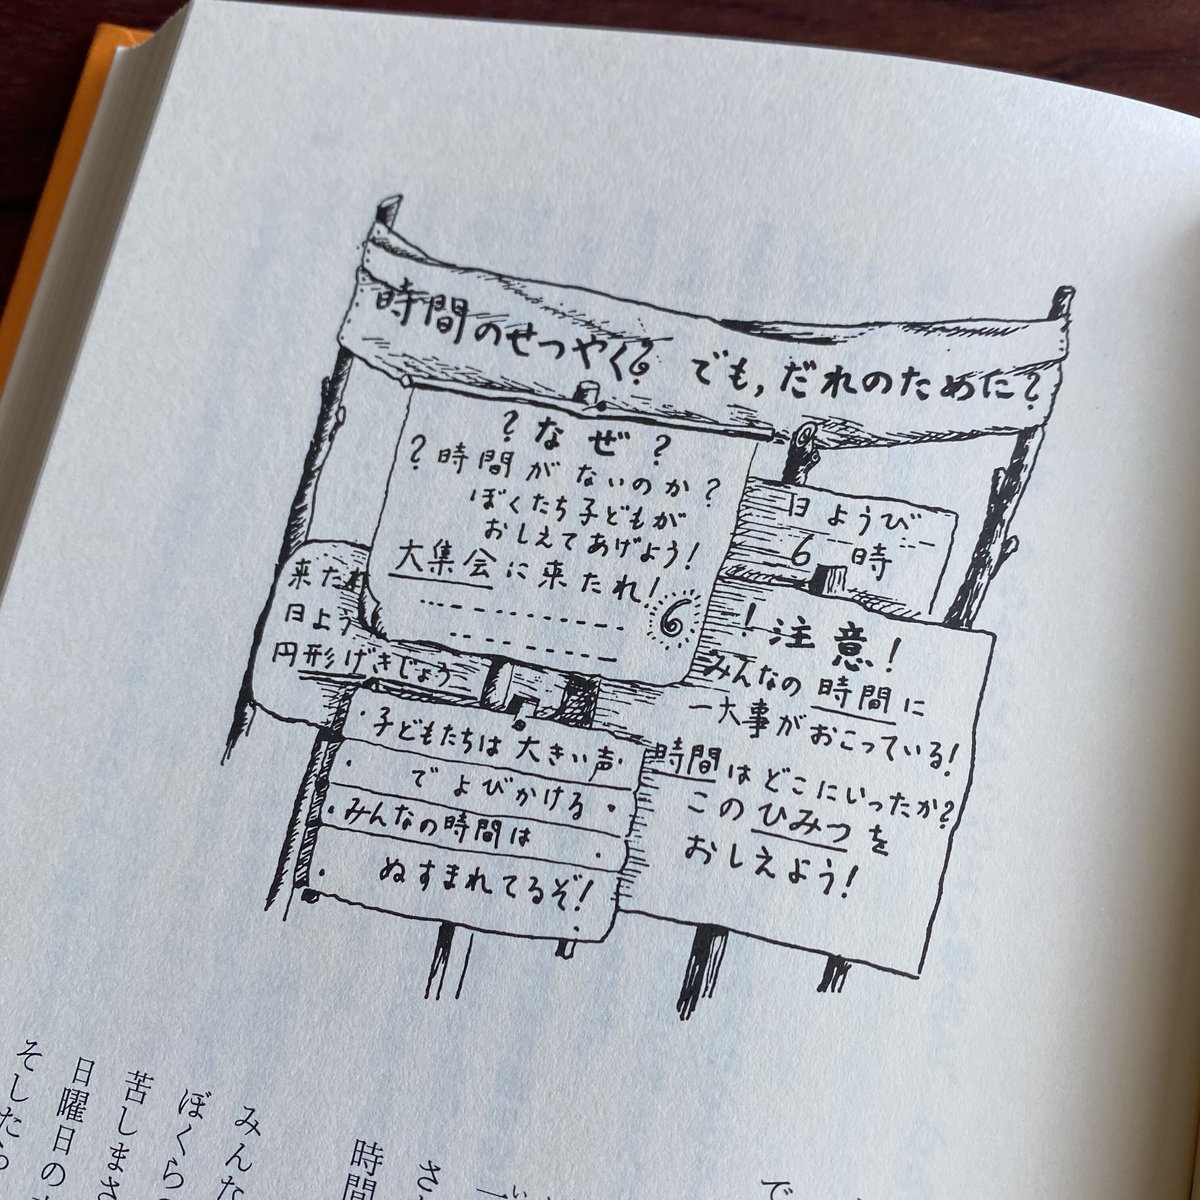 時間のせつやく? でも,だれのために?
?なぜ?
?時間がないのか?
ぼくたち子どもが
おしえてあげよう!
大集会に来たれ!
6
日ようび
6時
来たれ
日よう
円形げきじょう
!注意!
みんなの時間に
一大事がおこっている!
時間はどこにいったか?
このひみつを
おしえよう!
・子どもたちは大きい声・
・でよびかける・
・みんなの時間は・
・ぬすまれてるぞ!
で
さ
時間
みんな
ぼくら
苦しまさ
日曜日の
そしたら